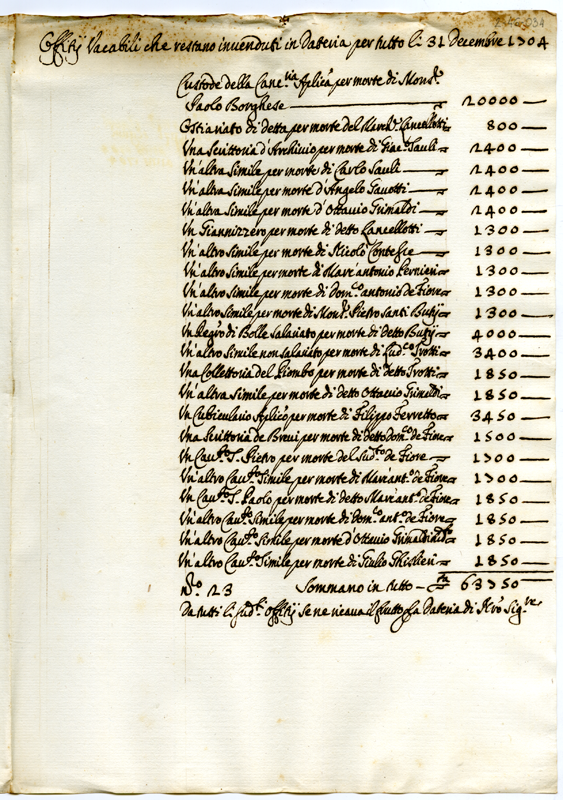 Offitij Vacabili che restano invenduti in Dateria per tutto li 31 Decembre 1704
Custode della Canc.ria Aplica per morte di Mons.r
Paolo Borghese 20000
Ostiariato di detta per morte del March. Lancellotti 800
Una Scrittoria d'Archivio per morte di Giac.o Sauli 2400
Un'altra Simile per morte di Carlo Sauli 2400
Un'altra Simile per morte d'Angelo Gavotti 2400
Un'altra Simile per morte d'Ottavio Grimaldi 2400
Un Giannizzero per morte di detto Lancellotti 1300
Un'altro Simile per morte di Nicolò Contesie 1300
Un'altro Simile per morte di Marc'antonio Vernieri 1300
Un'altro Simile per morte di Dom.co antonio de Fiore 1300
Un'altro Simile per morte di Mons.r Pietro Santi Butij 1300
Un Regro di Bolle salariato per morte di detto Butij 4000
Un'altro Simile non salariato per morte di Lud.co Trotti 3400
Una Collettoria del Piombo per morte di detto Trotti 1850
Un'altra Simile per morte di detto Ottavio Grimaldi 1850
Un Cubiculario Aplico per morte di Filippo Ferretto 3450
Una Scrittoria de Brevi per morte di detto Dom.co de Fiore 1500
Un Cav.to S. Pietro per morte del Sud.o de Fiore 1300
Un'altro Cav.to Simile per morte di Marc'ant.o de Fiore 1300
Un Cav.to S. Paolo per morte di detto Marc'ant.o de Fiore 1850
Un'altro Cav.to Simile per morte di Dom.co ant.o de Fiore 1850
Un'altro Cav.to Simile per morte d'Ottavio Grimaldi 1850
Un'altro Cav.to Simile per morte di Giulio Ghislieri 1850
N.o 23 Sommano in tutto 63350
Da tutti li sud.i offitij se ne ricava il frutto la Dateria di N'ro Sig.re